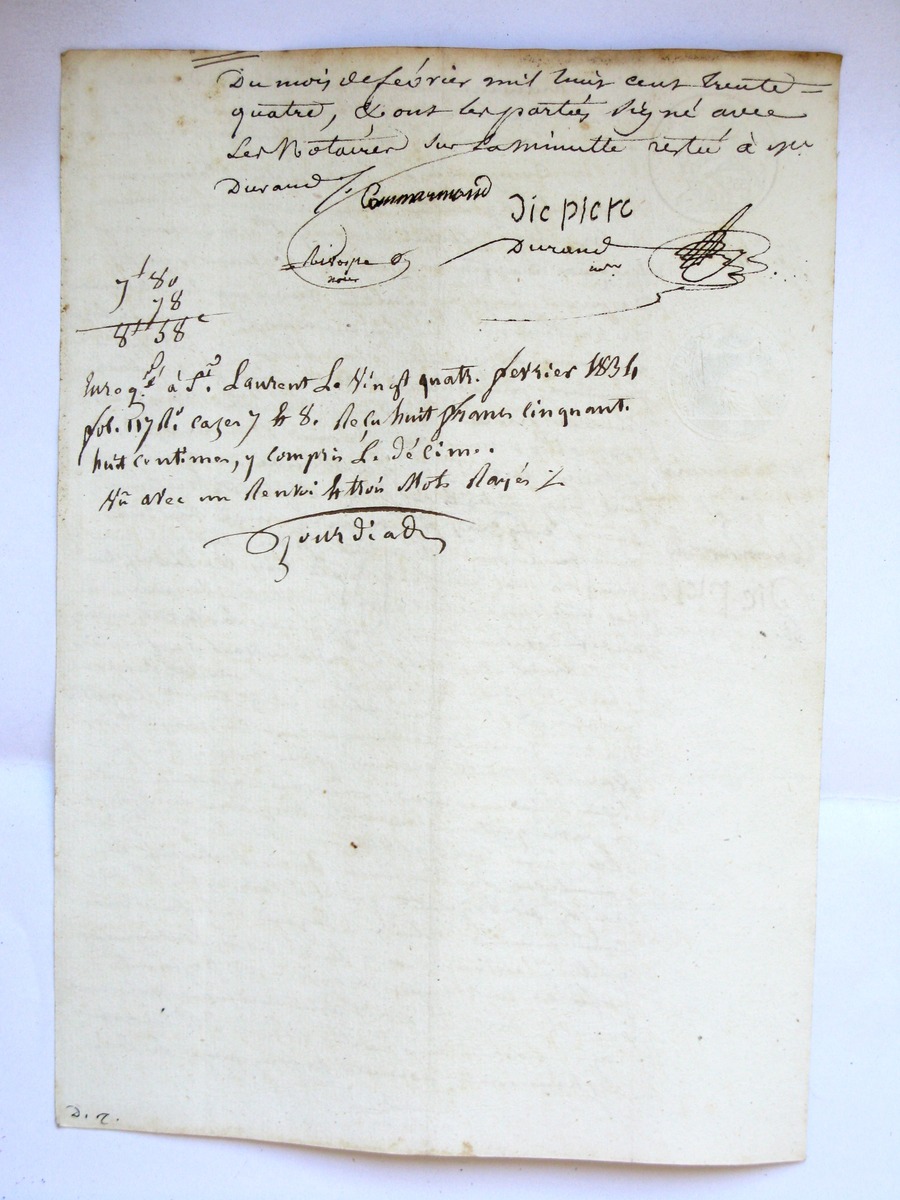 Du mois de février mil huit cent trente
quatre, & ont les parties signé avec
Les Notaires sur la minutte restée à Me
Durand /. Commarmond Die piere
Durand
nore
nore
7f 80
78
8ff 58c
Enregé à St. Laurent Le Vingt quatr. fevrier 1834
fol. 117 Ro. cazes 7 & 8. Reçu huit francs cinquant.
huit centimes, y compris Le décime.
avec un Renvoi & trois Mots Rayés
D. 2.